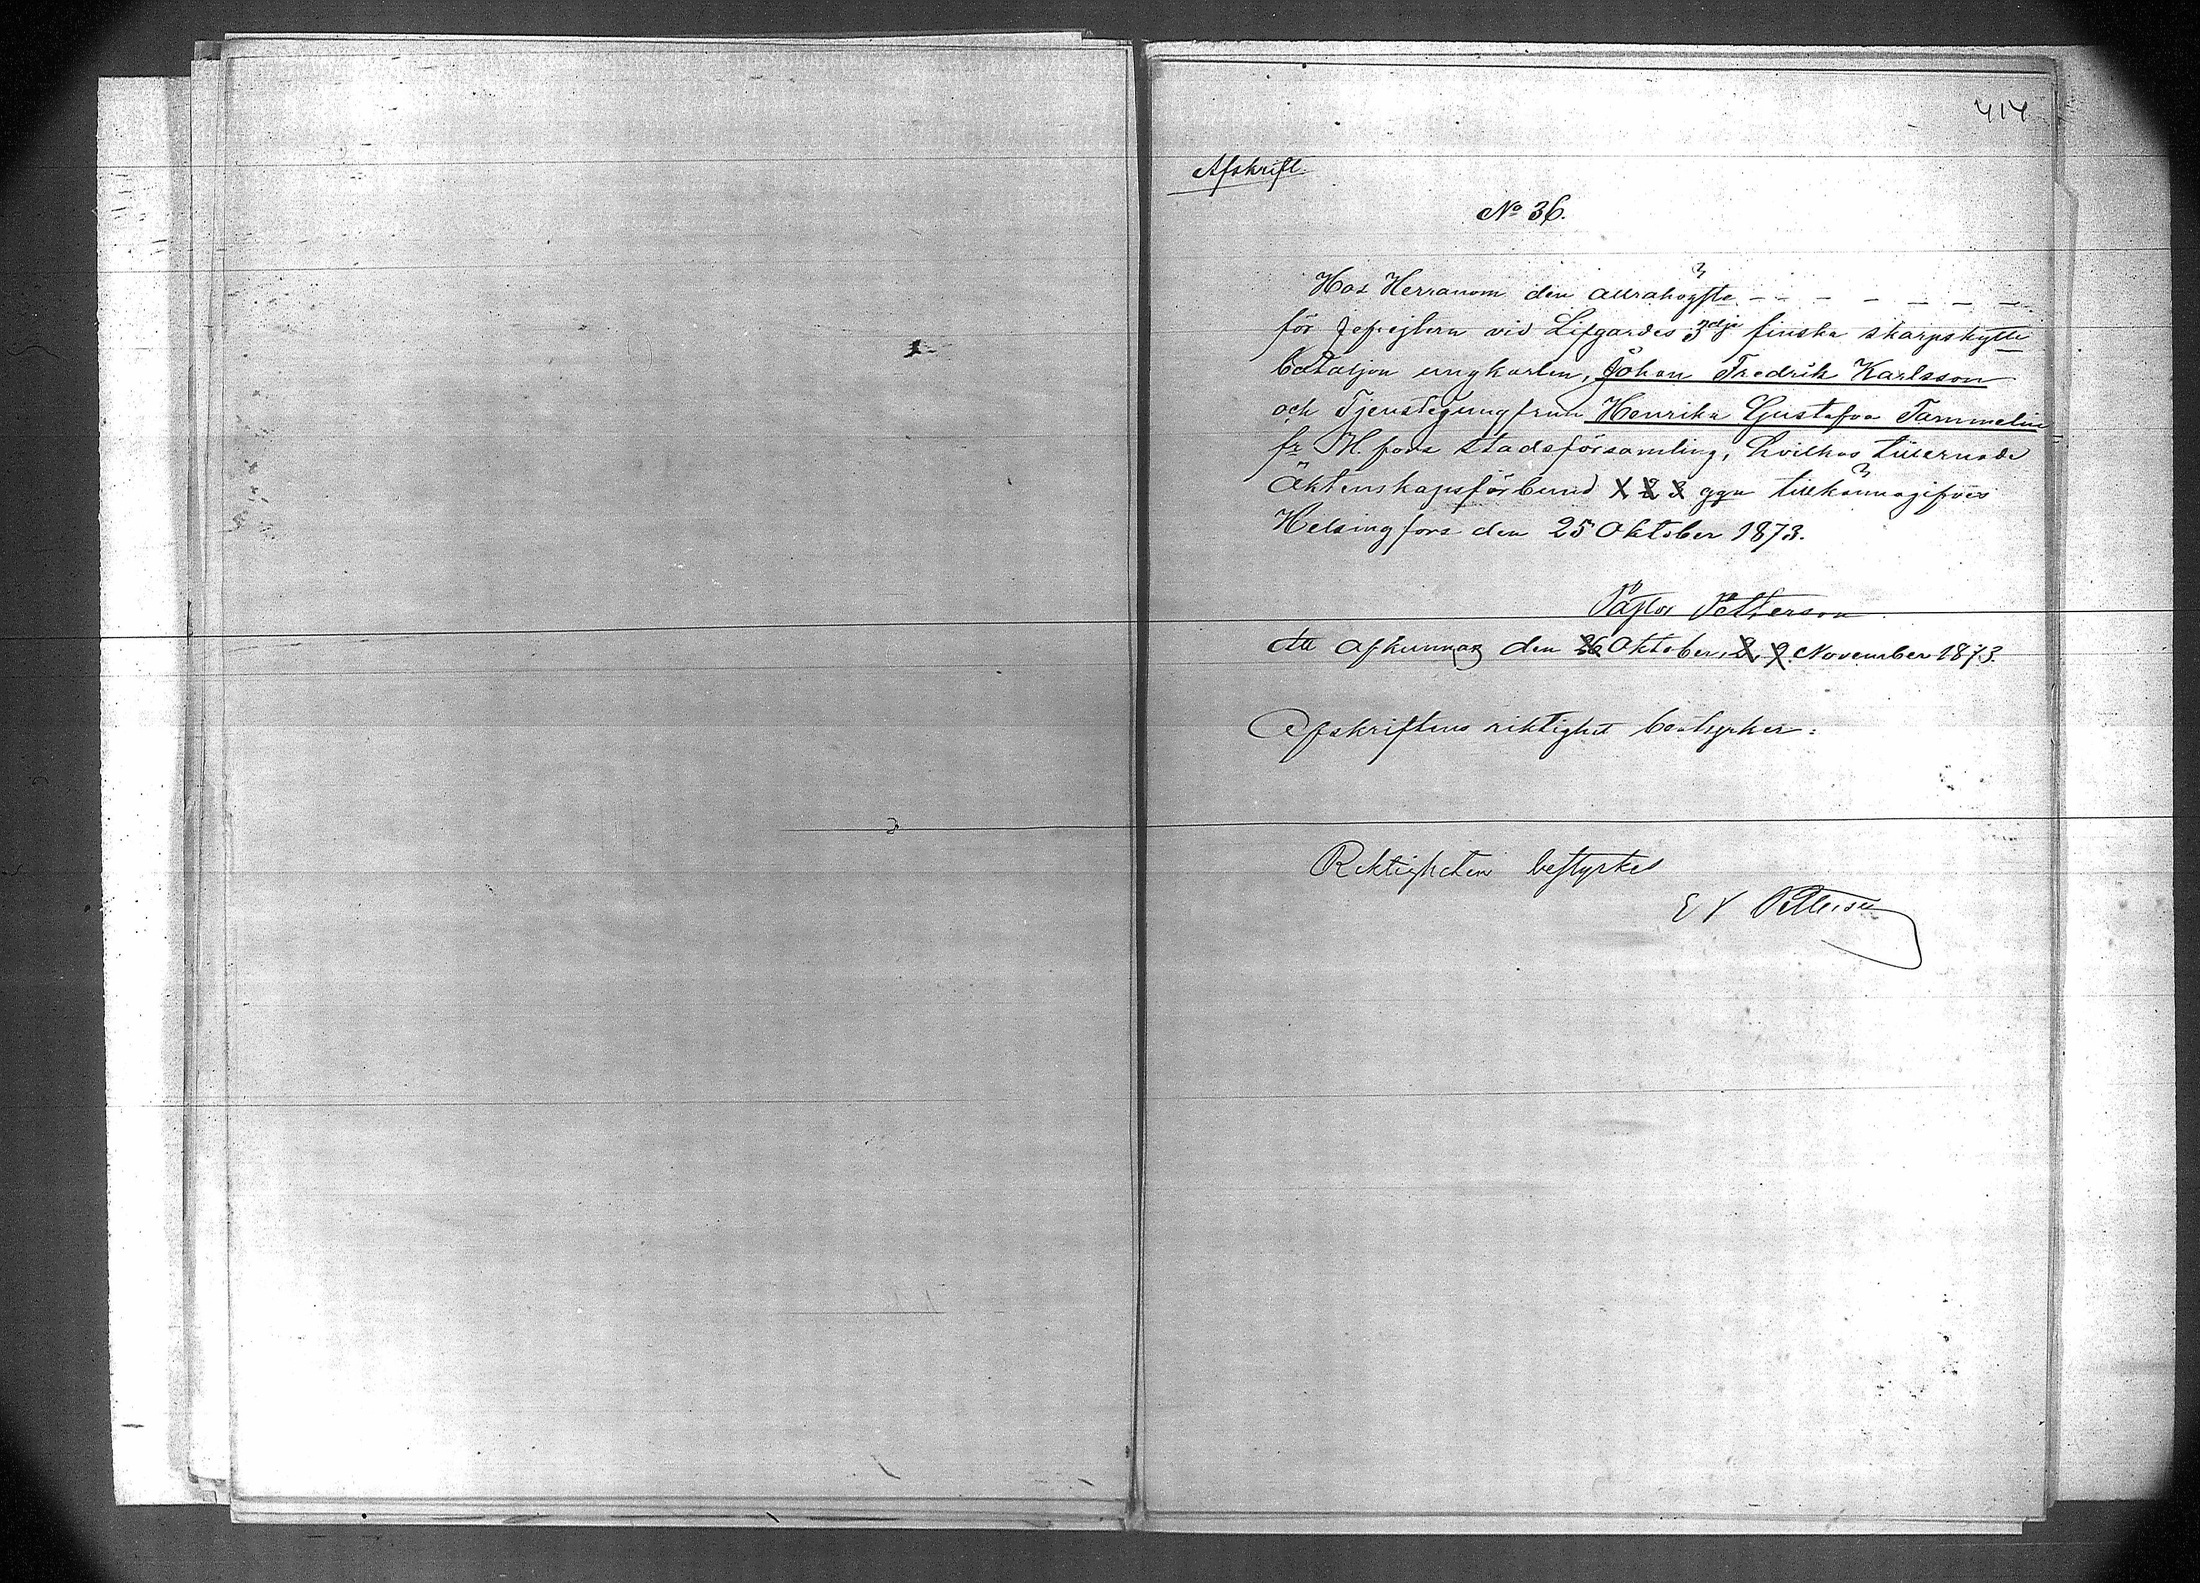 414
Afskrift
No 36.
Hos Herranom den allrahögste - - - - - - -
för Jefrejtern vid Lifgardes 3dje finska skarpskytte
bataljon ungkarlen, Johan Fredrik Karlsson
och Tjenstegungfrun Henrika Gustafva Tammelin
fr H. fors Stadsförsamling, hvilkas tillernade
Äktenskapsförbund 1 2 3 ggn tillkännagifves
Helsingfors den 25 Oktober 1873.
Pastor Petterson
Att afkunnas den 26 Oktober, 2, 9. November 1873.
Afskriftens riktighet bestyrker:
Riktigheten bestyrkes
E V Petterson